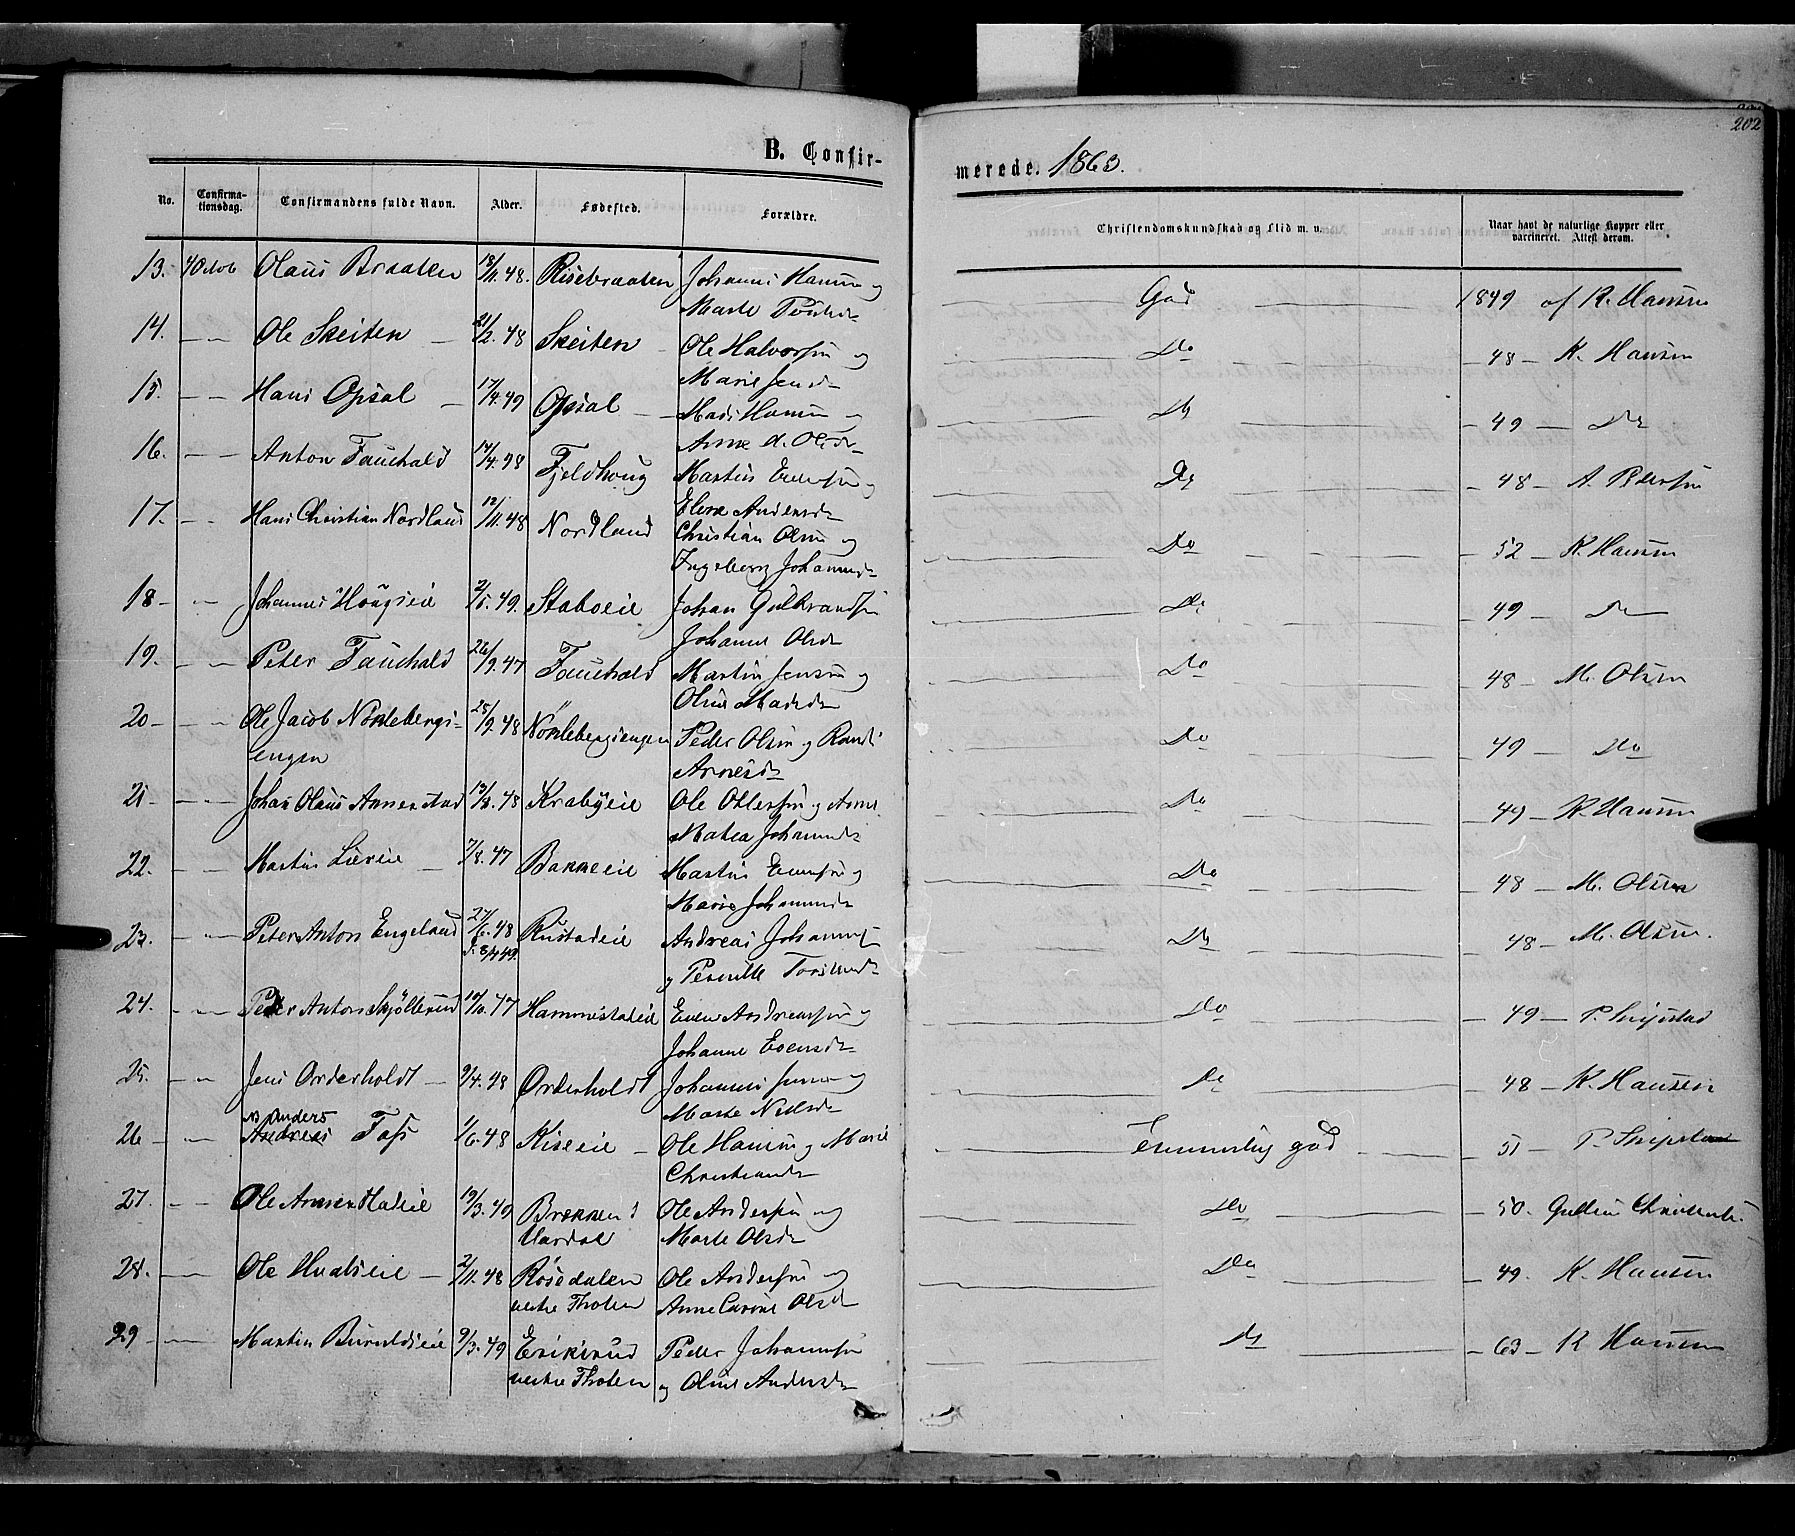 202
B. Confir-
merede. 1863.
No. Confirma-tionsdag. Confirmandens fulde Navn. Alder. Fødested. Forældre. Christendomskundskab og Flid m. v. Naar havt de naturlige Kopper eller vaccineret. Attest derom.
13. 4 Octob Olaus Braaten 18/11.48. Risebraaten Johannes Hansen og God 1849 af K. Hansen
Marte
14. - - Ole Skeiten - 21/2.48 Skeiten - Ole Halvorsen og Do 48 - K. Hansen
Marie Jensd
15. - - Hans Opsal - 17/4.49 Opsal - Mads Hansen og Do 49 - Do
Anne d. Olsd
16. - - Anton Fauchald 14/4.48 Fjeldhoug Martius Evensen og Do - 48 - A. Pedersen
Elene Andersd
17. - - Hans Christian Nordlund 12/11.48 Nordland Christian Olsen og Do - 52 - K. Hansen
Ingeborg Johannesd
18 - - Johannes Hougseie 2/5.49. Staboeie Johan Gulbrandsen Do 49 - Do
Johanne Olsd
19. - - Peter Fauchald 26/9.47 Fauchald Martin Jensen og Do - 48 - M. Olsen
Oline Madsd
20 - - Ole Jacob Nøklebergs- 28/9.48 Nøklebergsengen Peder Olsen og Randi Do 49 - Do
engen
Arnesd
21 - - Johan Olaus Annexstad 13/8.48 Krabyeie Ole Ottersen og Anne Do 49 - K. Hansen
Matea Johannesd
22. - - Martin Liereie - 7/8.47 Bakkeeie Martius Evensen og Do - 48 - M. Olsen
Marie Johannesd
23. - - Peter Anton Engelund 27/6.48 Rustadeie Andreas Johannes Do - 48 - M. Olsen.
og Pernille
24. - - Peter Anton Skjøllerud 10/10.47 Hammestadeie Even Andreassen og Do - 49 - P. Snipstad
Johanne Evensd
25. - - Jens Orderholdt - 9/4.48 Orderholdt Johannes Jensen og Do - 48 - K. Hansen
Marte Nielsd
NB Anders
26 - - Andreas Fass 1/6.48 Riseeie - Ole Hansen og Marie Temmelig god 51 - P. Snipstad
Christiansd
27 - - Ole Annexstadeie 19/3.49 Brekken i Ole Andersen og Do - 50. Gulbrand
Vardal Marte Olsd
28. - - Ole Hvalseie - 2/11.48 Rosedalen Ole Andersen og Do - 49. K. Hansen
vestre Thoten Anne Carine Olsd
29 - - Martin Buruldseie 9/3.49 Eriksrud Peder Johannsen Do - 63 - K Hansen
vestre Thoten og Oline Andersd